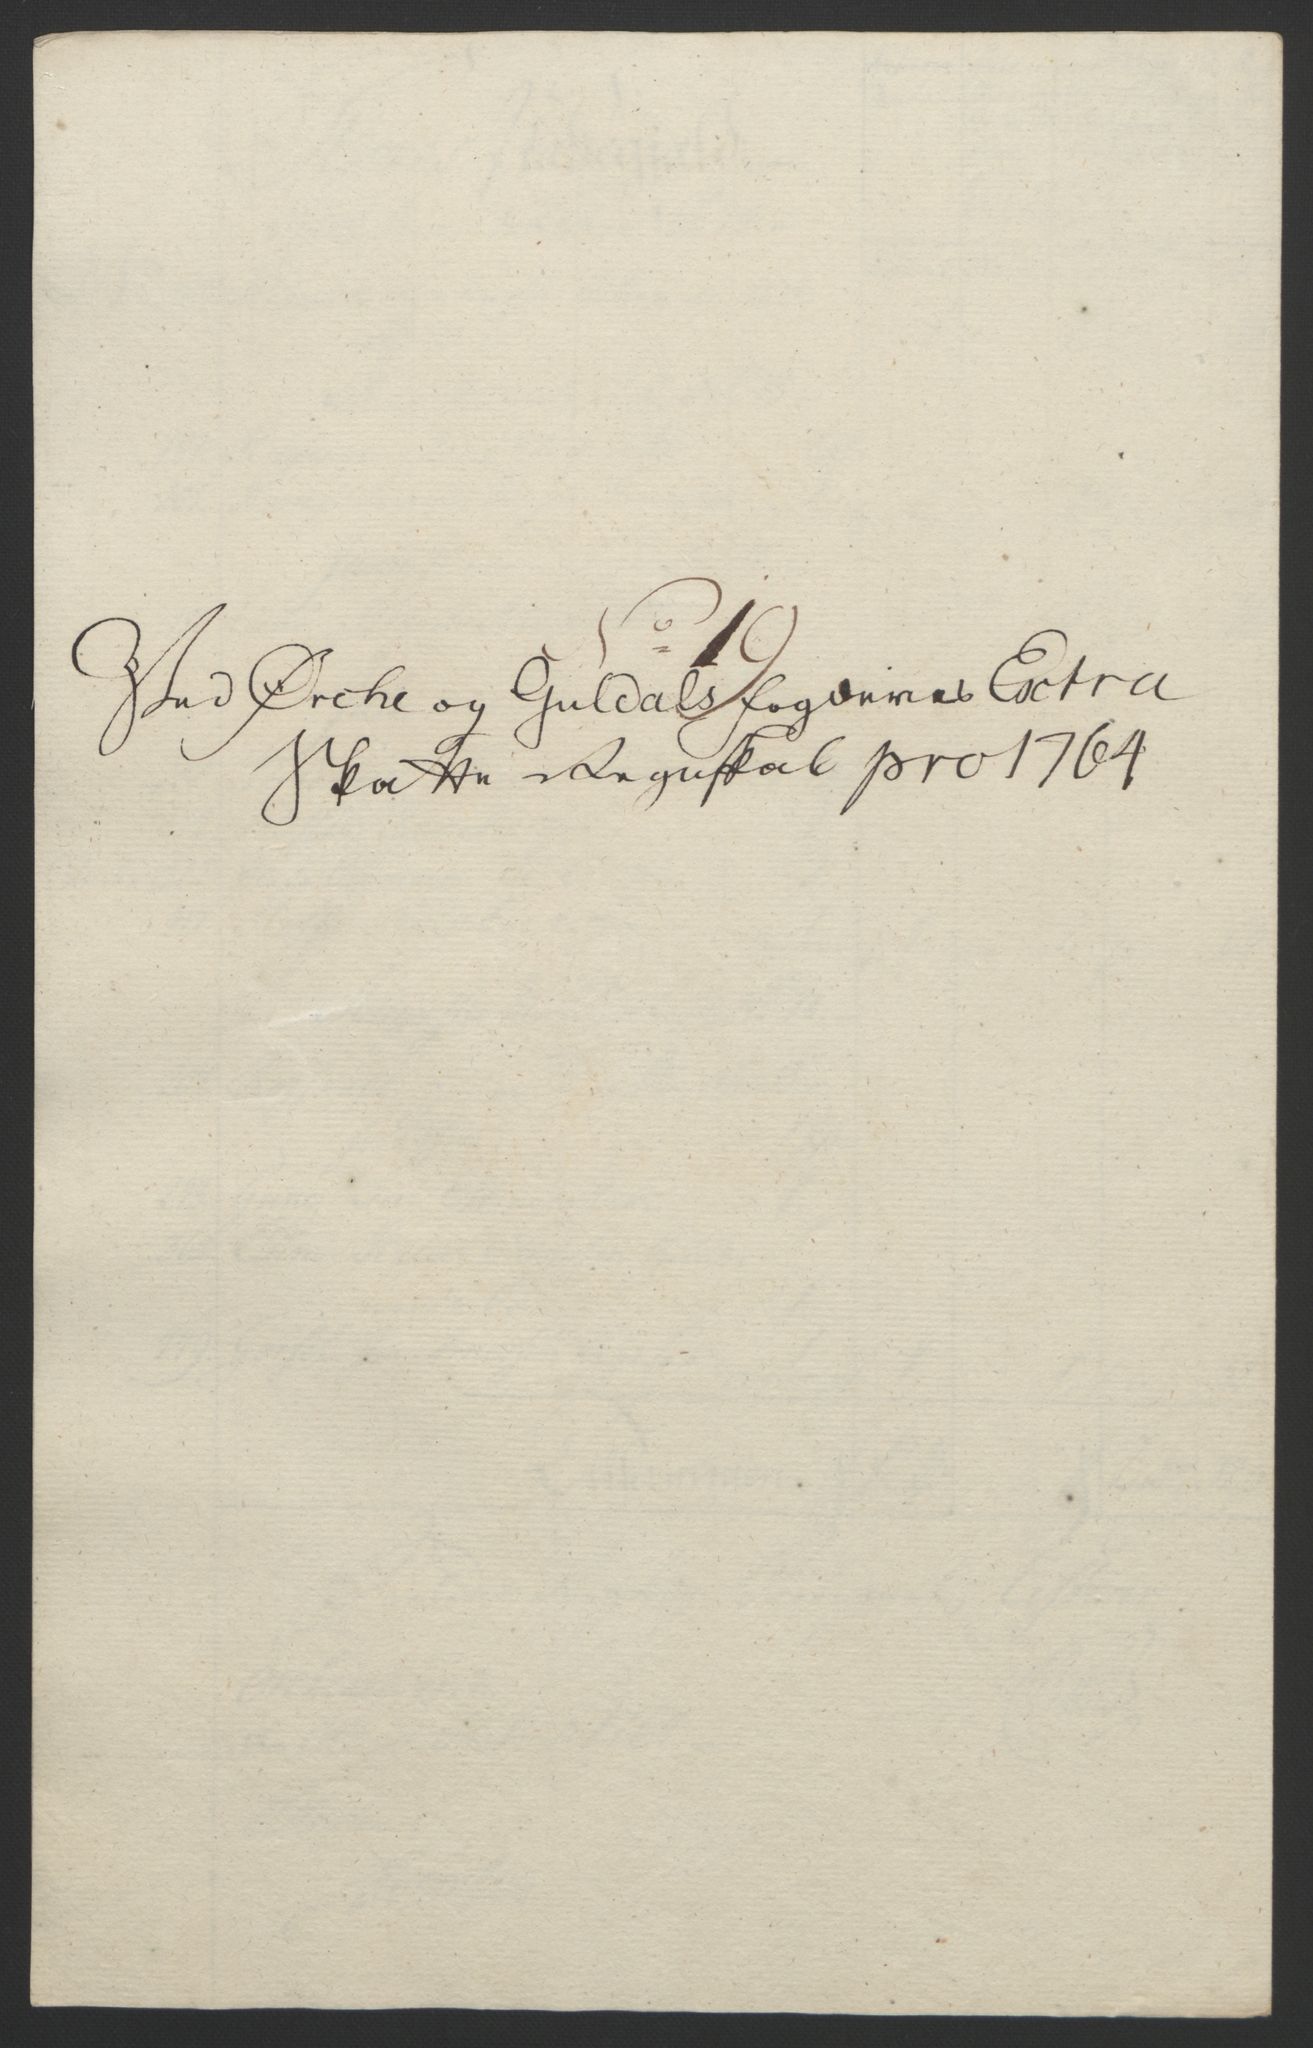 No 19
Ved Ørche og Guldals fogderies Extra
Skatte Regnskab pro 1764